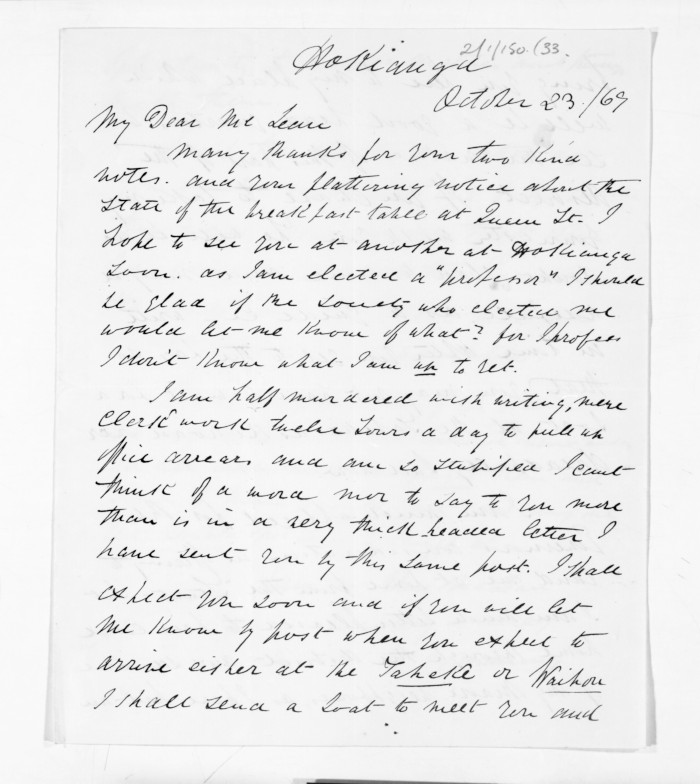 2/1/150.(33.
Hokianga
October 23./69
My Dear McLean
Many thanks for your two kind
notes. and your flattering notice about the
state of the breakfast table at Queen St. I
hope to see you at another at Hokianga
soon. as I am elected a "professor" I should
be glad if the society who elected me
would let me know of what? for I profess
I don't know what I am up to yet.
I am half murdered with writing, mere
clerk work twelve hours a day to pull up
office arrears and am so stupified I cant
think of a word mor to say to you more
than is in a very thick headed letter I
have sent you by this same post. I shall
expect you soon and if you will let
me know by post when you expect to
arrive either at the Taheke or Waihou
I shall send a boat to meet you and